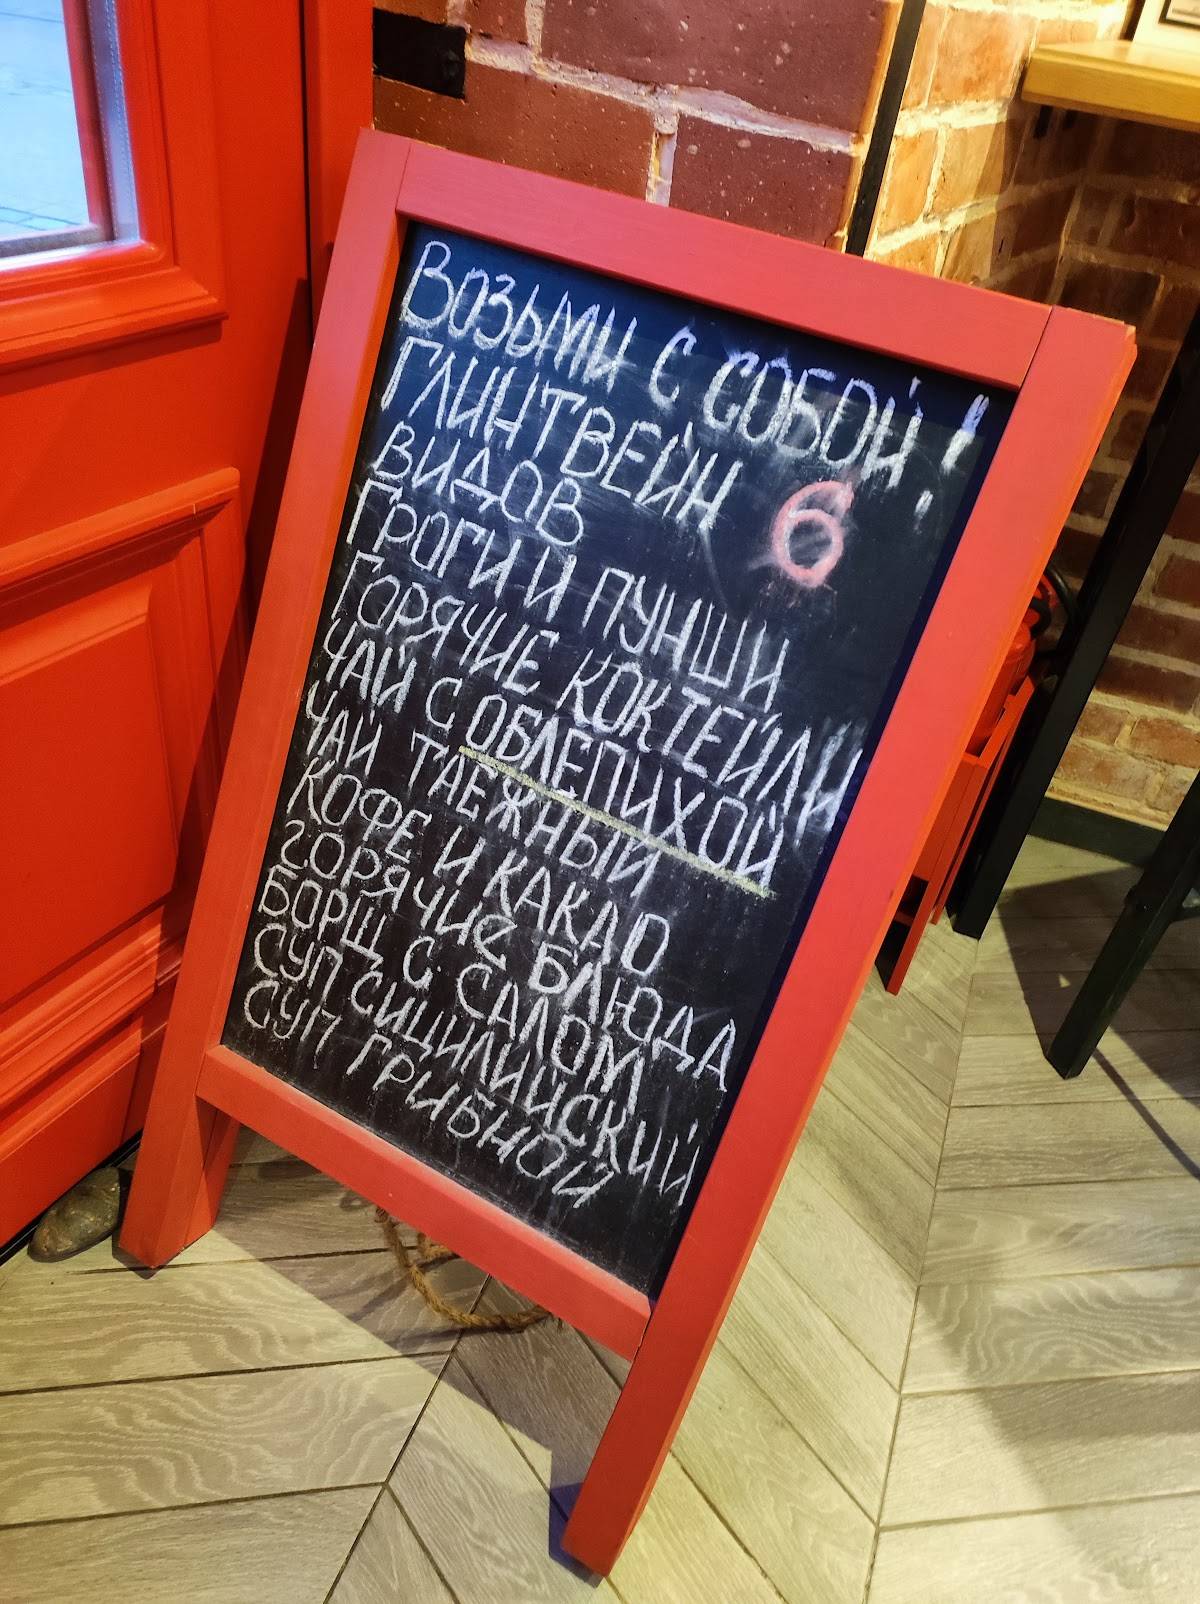 Возьми с собой!
ГЛИНТВЕЙН 6
ВИДОВ
ГРОГИ И ПУНШИ
ГОРЯЧИЕ КОКТЕЙЛИ
ЧАЙ С ОБЛЕПИХОЙ
ЧАЙ ТАЕЖНЫЙ
КОФЕ И КАКАО
ГОРЯЧИЕ БЛЮДА
БОРЩ С САЛОМ
СУП СИЦИЛИЙСКИЙ
СУП ГРИБНОЙ